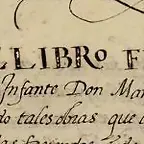 LLIBRO F
Infante Don Man
do tales obras que